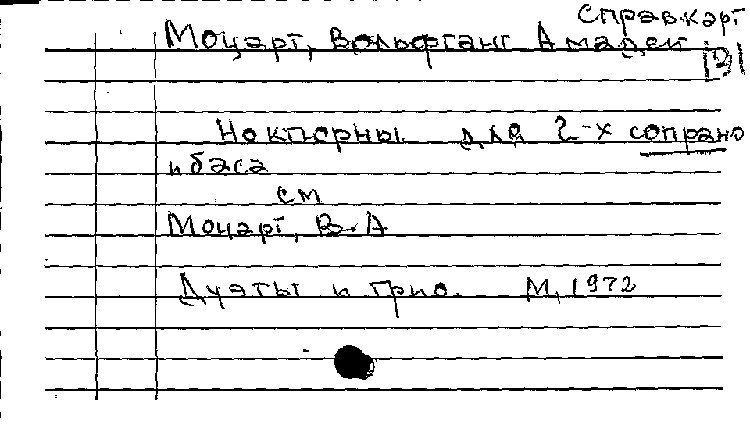 Справ.карт
Моцарт, Вольфганг Амадей
Ноктюрны для 2-х сопрано
и баса
см
Моцарт, В.А
Дуэты и трио. М, 1972